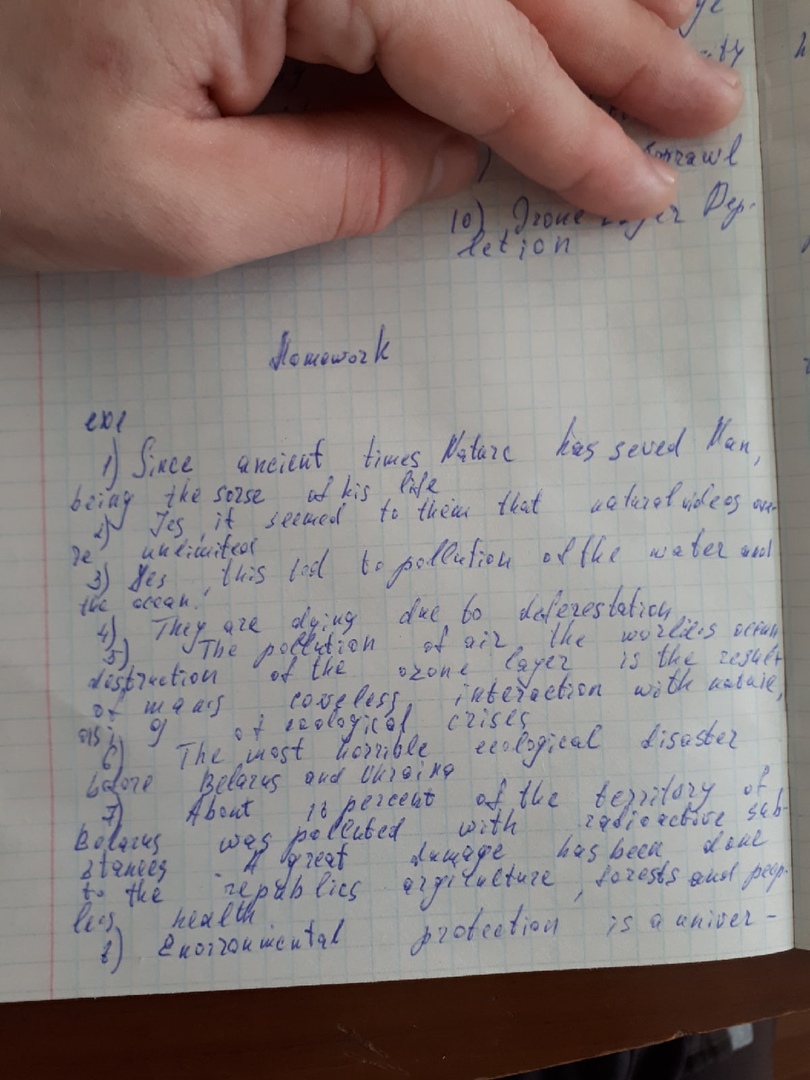 sprawl
10) Ozone Layer Dep-
letion
Homework
ex1
1) Since ancient times Nature has seved Man,
being the sorse of his life
2) Yes, it seemed to them that natural
re unlimited
3) Yes, this led to pollution of the water and
the ocean.
4) They are dying due to deferestation
5) The pollution of air the world's ocean
distruction of the ozone layer is the result
of mans coveless interaction with nature,
of ecological crises
6) The most horrible ecological disaster
before Belarus and Ukraina
7) About 18 percent of the territory of
Belarus was polluted with radioactive sub-
stances A great damage has been done
to the republics argiculture, forests and peop-
les health
8) Environmental protection is a univer-